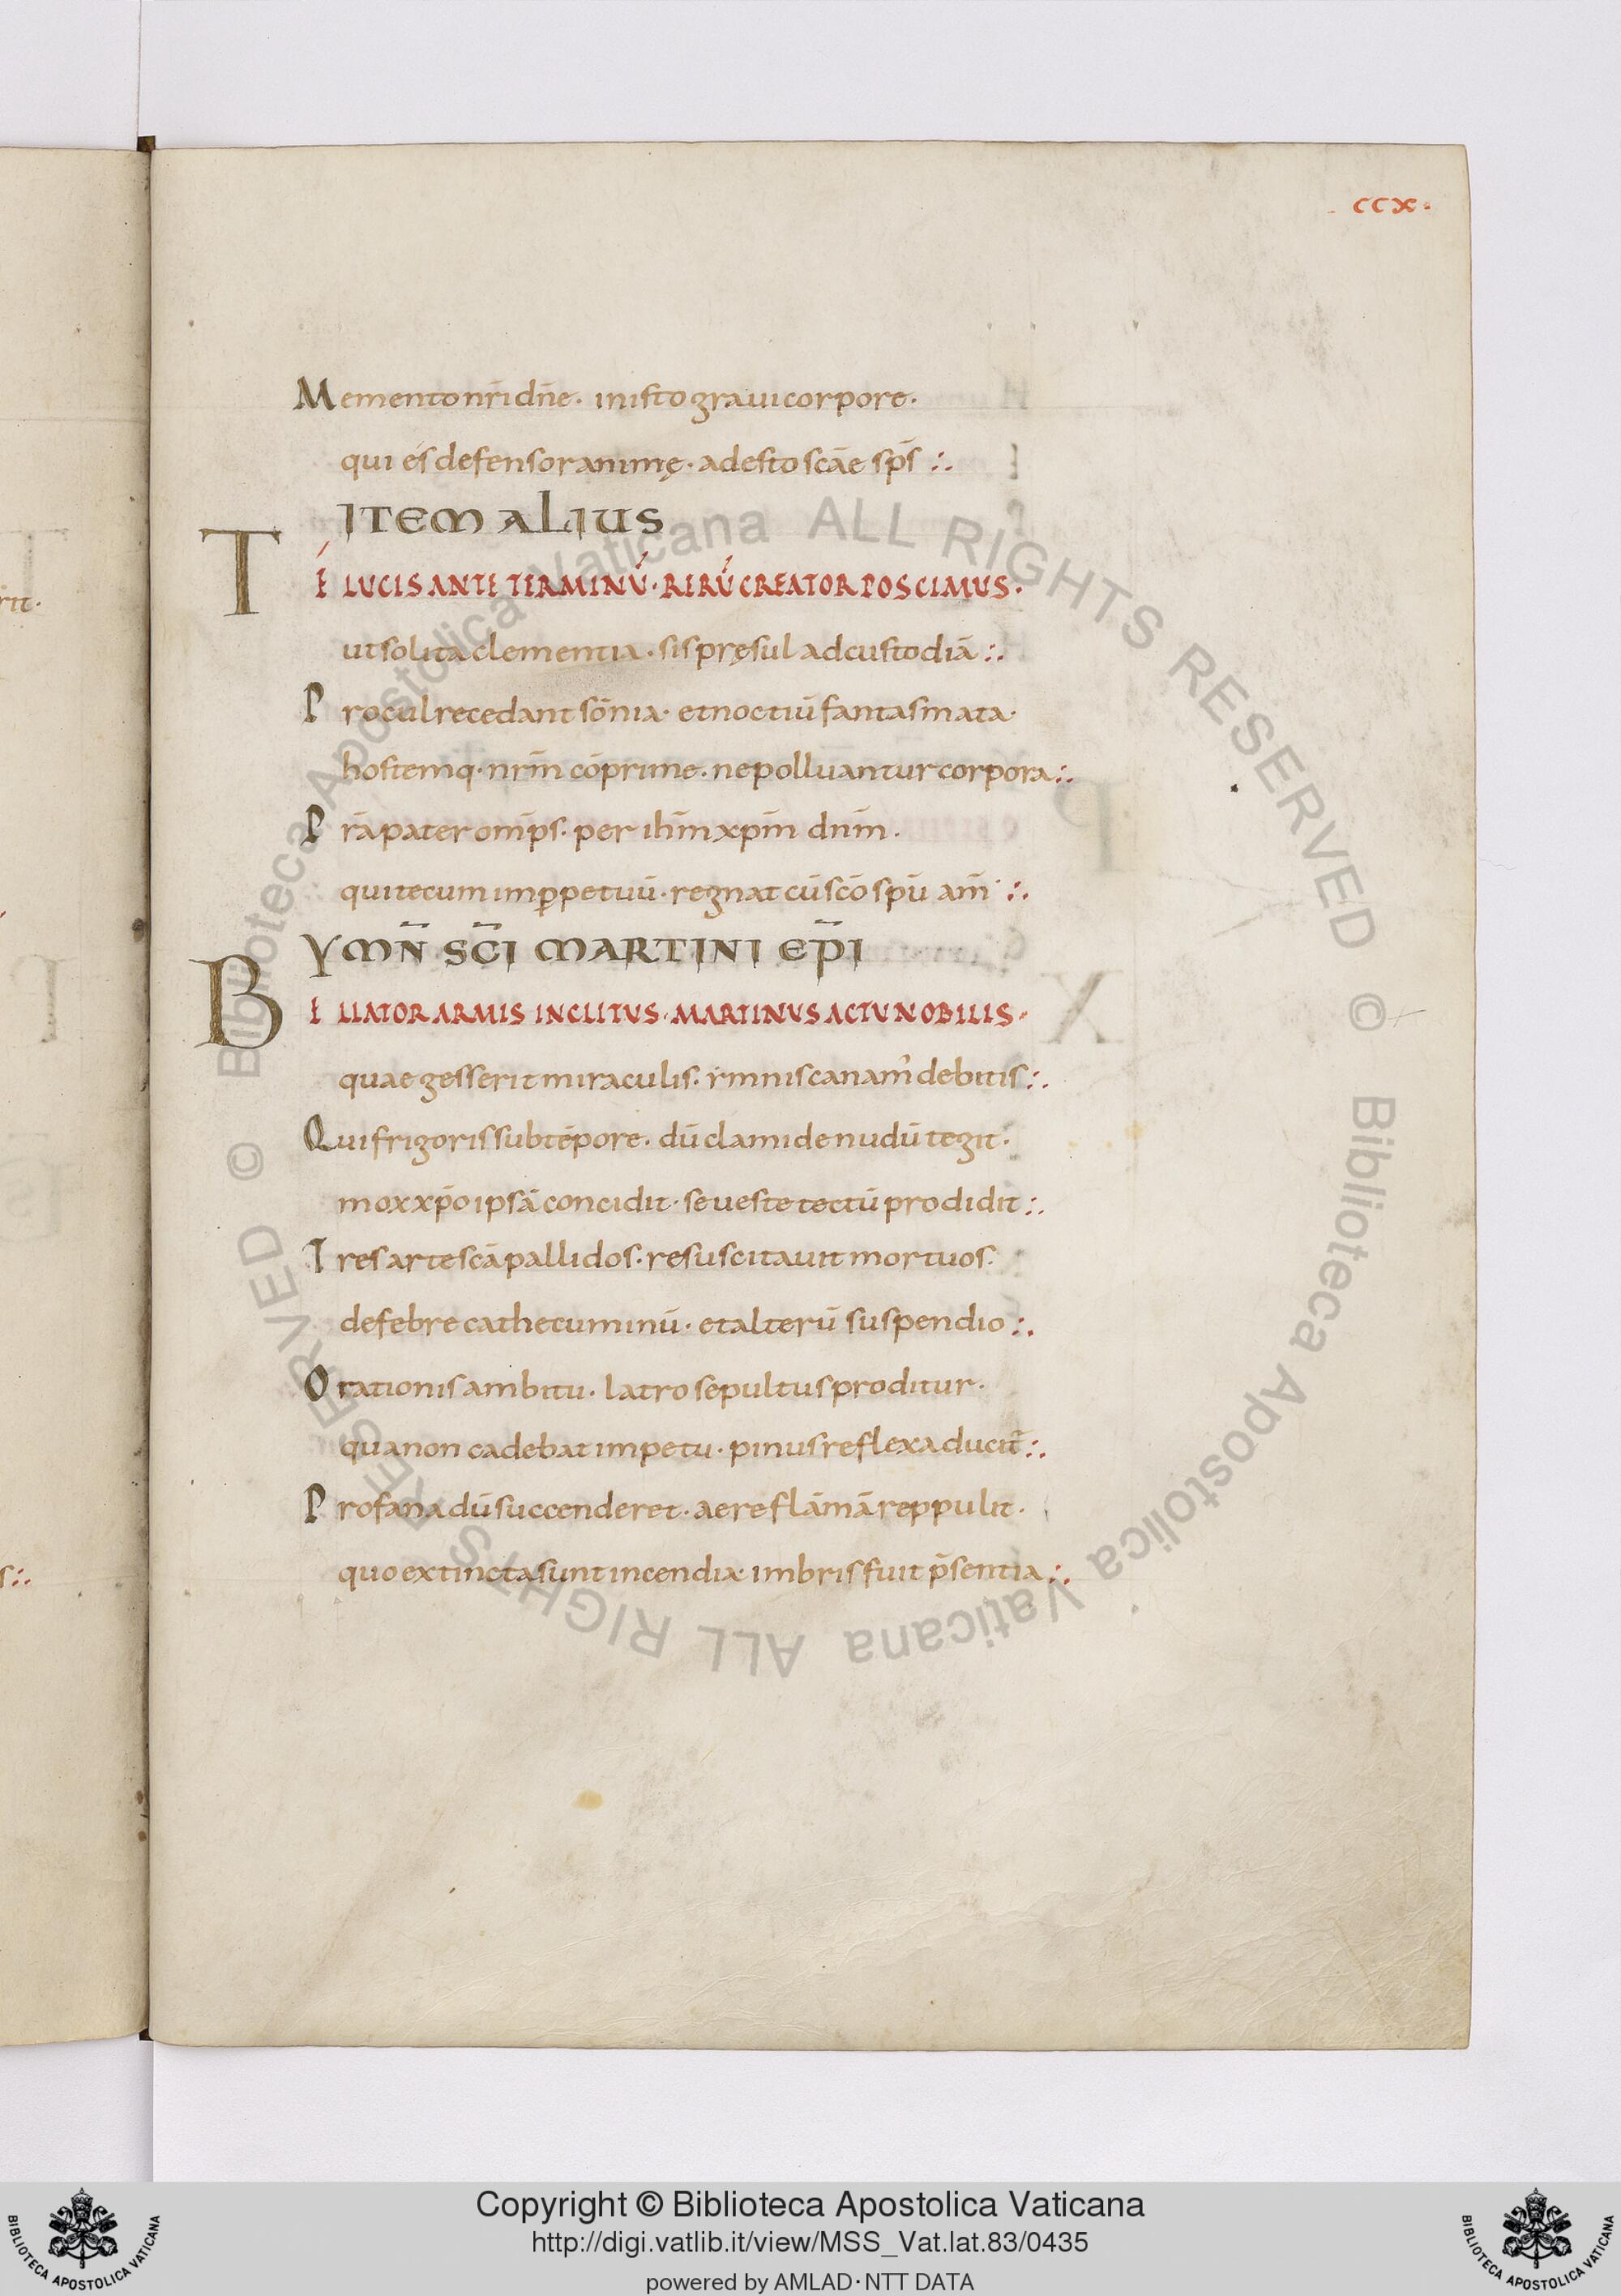 ccx.
Memento nr̄i dn̄e. in isto graui corpore.
qui es defensor animę. adesto scāe sp̄s :.
ITEM ALIUS
TE LUCIS ANTE TERMINŪ. RERŪ CREATOR POSCIMUS.
ut solita clementia. sis pręsul ad custodiā :.
Procul recedant sōnia. et noctiū fantasmata.
hostemq. nr̄m cōprime. ne polluantur corpora :.
Prā pater om̄ps. per ih̄m xp̄m dn̄m.
qui tecum in p̱petuū. regnat cū scō sp̄u am̄ :.
YMN̄ SC̄I MARTINI EP̄I
BELLATOR ARMIS INCLITUS. MARTINUS ACTU NOBILIS.
quae gesserit miraculis. ymnis canam' debitis :.
Qui frigoris sub tēpore. dū clamide nudū tegit.
mox xp̄o ipsā concidit. se ueste tectū prodidit :.
Tres arte scā pallidos. resuscitauit mortuos.
de febre cathecuminū. et alterū suspendio :.
Orationis ambitu. latro sepultus proditur.
qua non cadebat impetu. pinus reflexaducit̄ :.
Profana dū succenderet. aere flāmā reppulit.
quo extincta sunt incendia. imbris fuit p̄sentia :.
rit.
s :.
© Biblioteca Apostolica Vaticana ALL RIGHTS RESERVED © Biblioteca Apostolica Vaticana ALL RIGHTS RESERVED
Copyright © Biblioteca Apostolica Vaticana
http://digi.vatlib.it/view/MSS_Vat.lat.83/0435
powered by AMLAD·NTT DATA
BIBLIOTECA APOSTOLICA VATICANA
BIBLIOTECA APOSTOLICA VATICANA